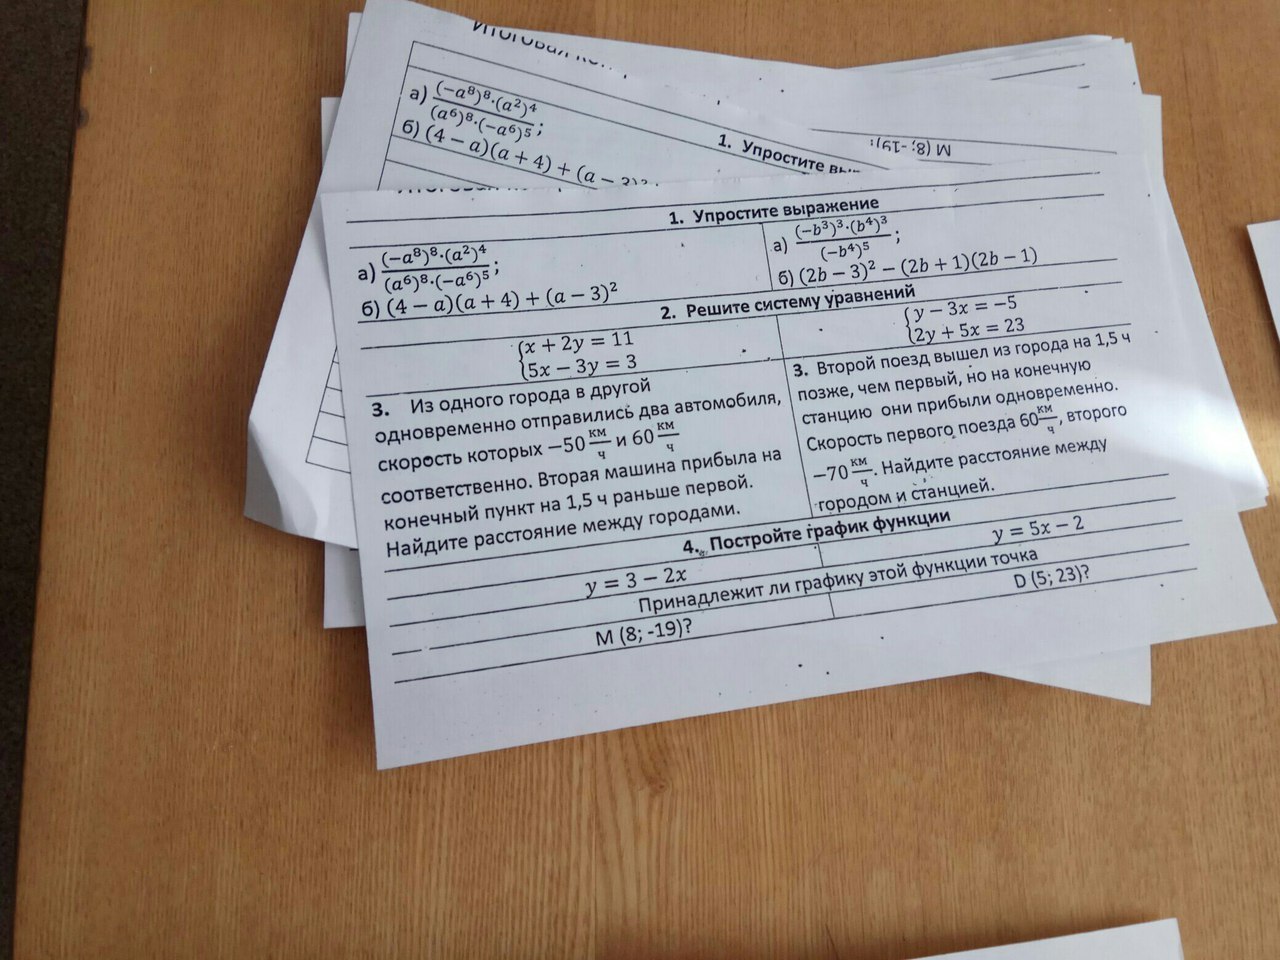 а) (−a⁸)⁸·(a²)⁴ / (a⁶)⁸·(−a⁶)⁵ ;
б) (4 − a)(a + 4) + (a −
1. Упростите
М (8; -19):
1. Упростите выражение
а) (−a⁸)⁸·(a²)⁴ / (a⁶)⁸·(−a⁶)⁵ ;
б) (4 − a)(a + 4) + (a − 3)²
а) (−b³)³·(b⁴)³ / (−b⁴)⁵ ;
б) (2b − 3)² − (2b + 1)(2b − 1)
2. Решите систему уравнений
{x + 2y = 11
5x − 3y = 3
{y − 3x = −5
2y + 5x = 23
3. Из одного города в другой
одновременно отправились два автомобиля,
скорость которых −50 км/ч и 60 км/ч
соответственно. Вторая машина прибыла на
конечный пункт на 1,5 ч раньше первой.
Найдите расстояние между городами.
3. Второй поезд вышел из города на 1,5 ч
позже, чем первый, но на конечную
станцию они прибыли одновременно.
Скорость первого поезда 60 км/ч, второго
−70 км/ч. Найдите расстояние между
городом и станцией.
4. Постройте график функции
y = 3 − 2x
y = 5x − 2
Принадлежит ли графику этой функции точка
М (8; -19)?
D (5; 23)?